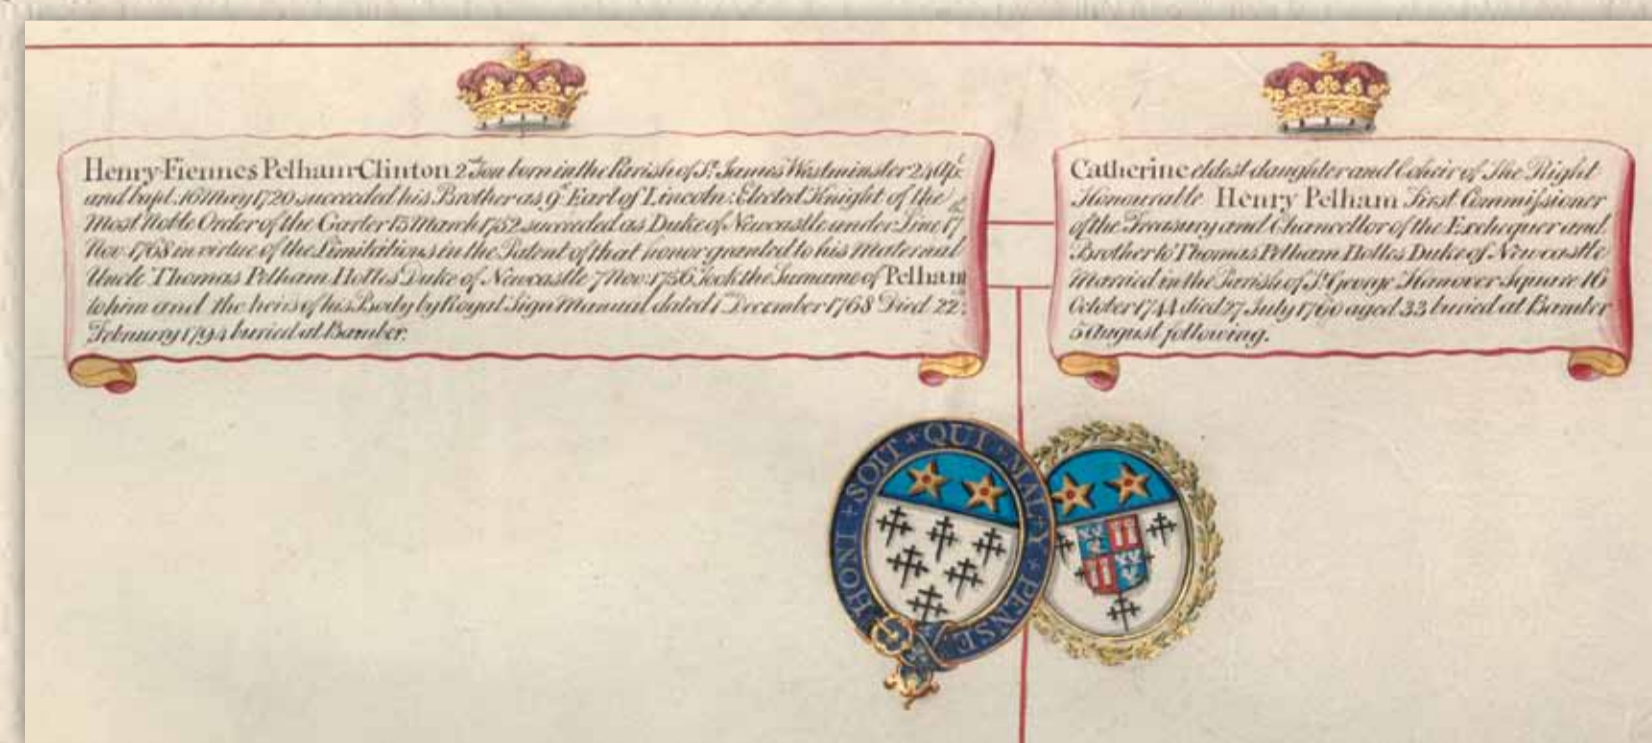 Henry Fiennes Pelham Clinton 2d Son born in the Parish of St. James Westminster 24 Apl.
and bapt. 16 May 1720 succeeded his Brother as 9th Earl of Lincoln: Elected Knight of the
Most Noble Order of the Garter 13 March 1752 succeeded as Duke of Newcastle under Line 17
Nov. 1768 in virtue of the Limitations in the Patent of that honor granted to his maternal
Uncle Thomas Pelham Holles Duke of Newcastle 7 Nov. 1756. took the Surname of Pelham
to him and the heirs of his Body by Royal Sign Manual dated 1 December 1768 Died 22d.
February 1794 buried at Bamber.
Catherine eldest daughter and Coheir of The Right
Honourable Henry Pelham First Commissioner
of the Treasury and Chancellor of the Exchequer and
Brother to Thomas Pelham Holles Duke of Newcastle
Married in the Parish of St. George Hanover Square 16
October 1744 died 27 July 1760 aged 33 buried at Bamber
5 August following.
HONI + SOIT + QUI + MAL + Y + PENSE